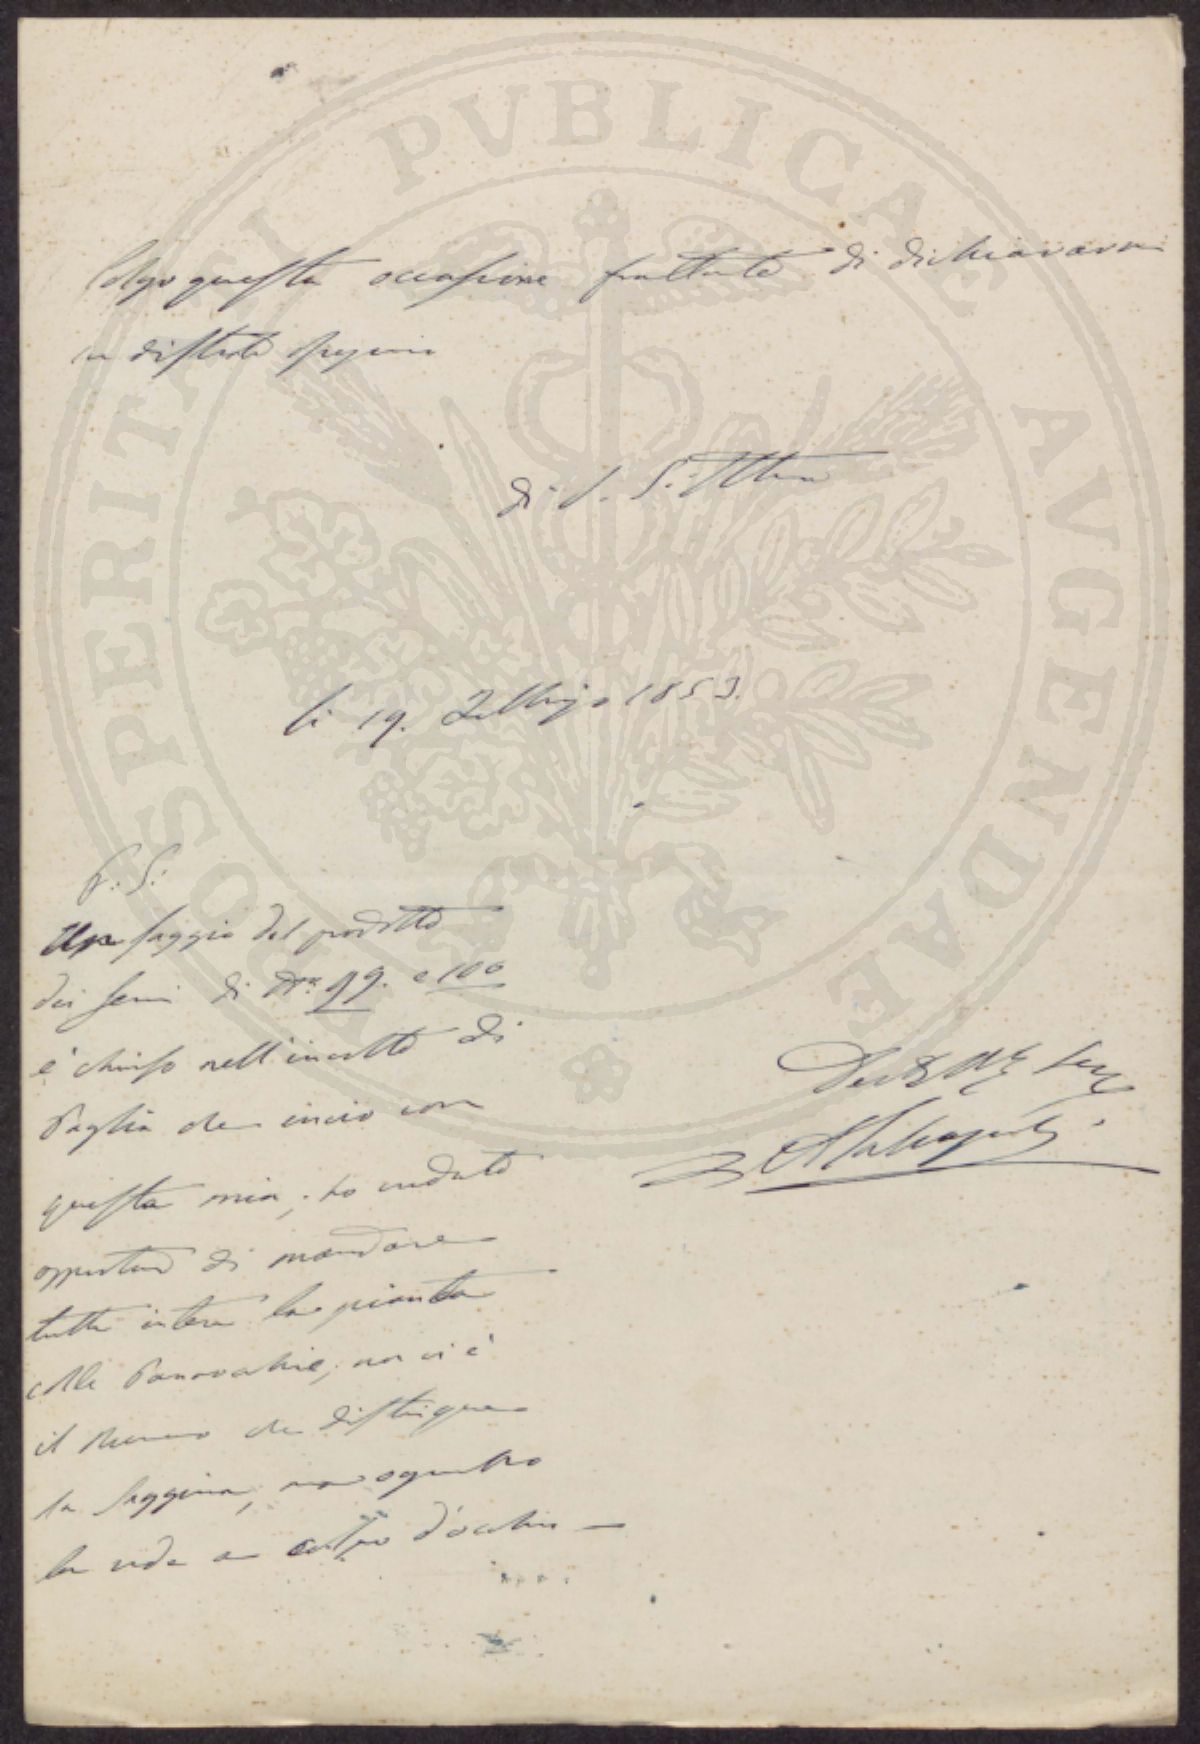 PROSPERITATI PVBLICAE AVGENDAE
Colgo questa occasione frattanto di dichiararmi
con distinta
di V. S. Illma
li 19. 1853.
P. S.
Un saggio del prodotto
dei semi di Nr. 99. e 100
è chiuso nell'involto di
Paglia che invio con
questa mia, ho creduto
di mandare
tutta intera la pianta
colle Pannocchie, non vi è
il numero che distingue
la saggina, ma ognuno
la vede a colpo d'occhio —